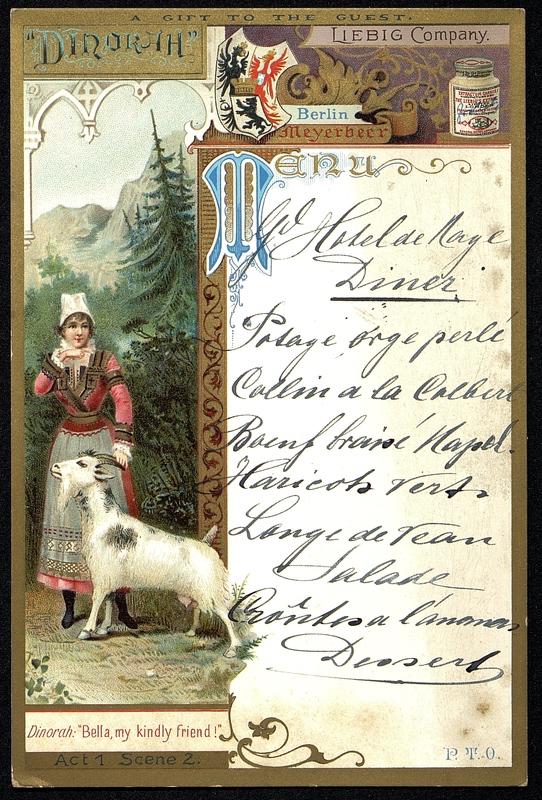 A GIFT TO THE GUEST.
"DINORAH"
LIEBIG Company.
Berlin
Meyerbeer
MENU
Gd Hotel de Naye
Diner
Potage orge perlé
Collin a la Colbert
Boeuf braisé Napol.
Haricots verts
Longe de Veau
Salade
Croûtes a l'ananas
Dessert
Dinorah: "Bella, my kindly friend!"
Act 1 Scene 2.
P. T. O.